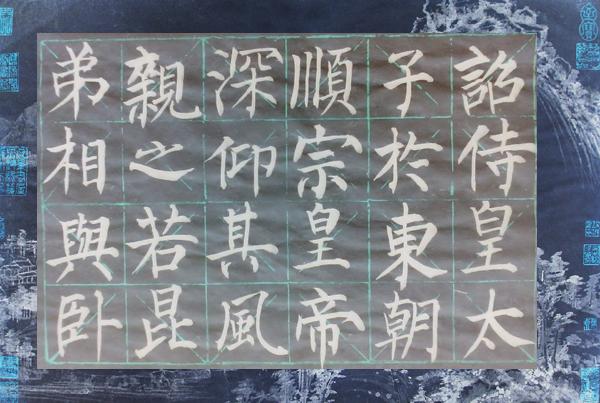 詔侍皇太
子於東朝
順宗皇帝
深仰其風
親之若昆
弟相與卧